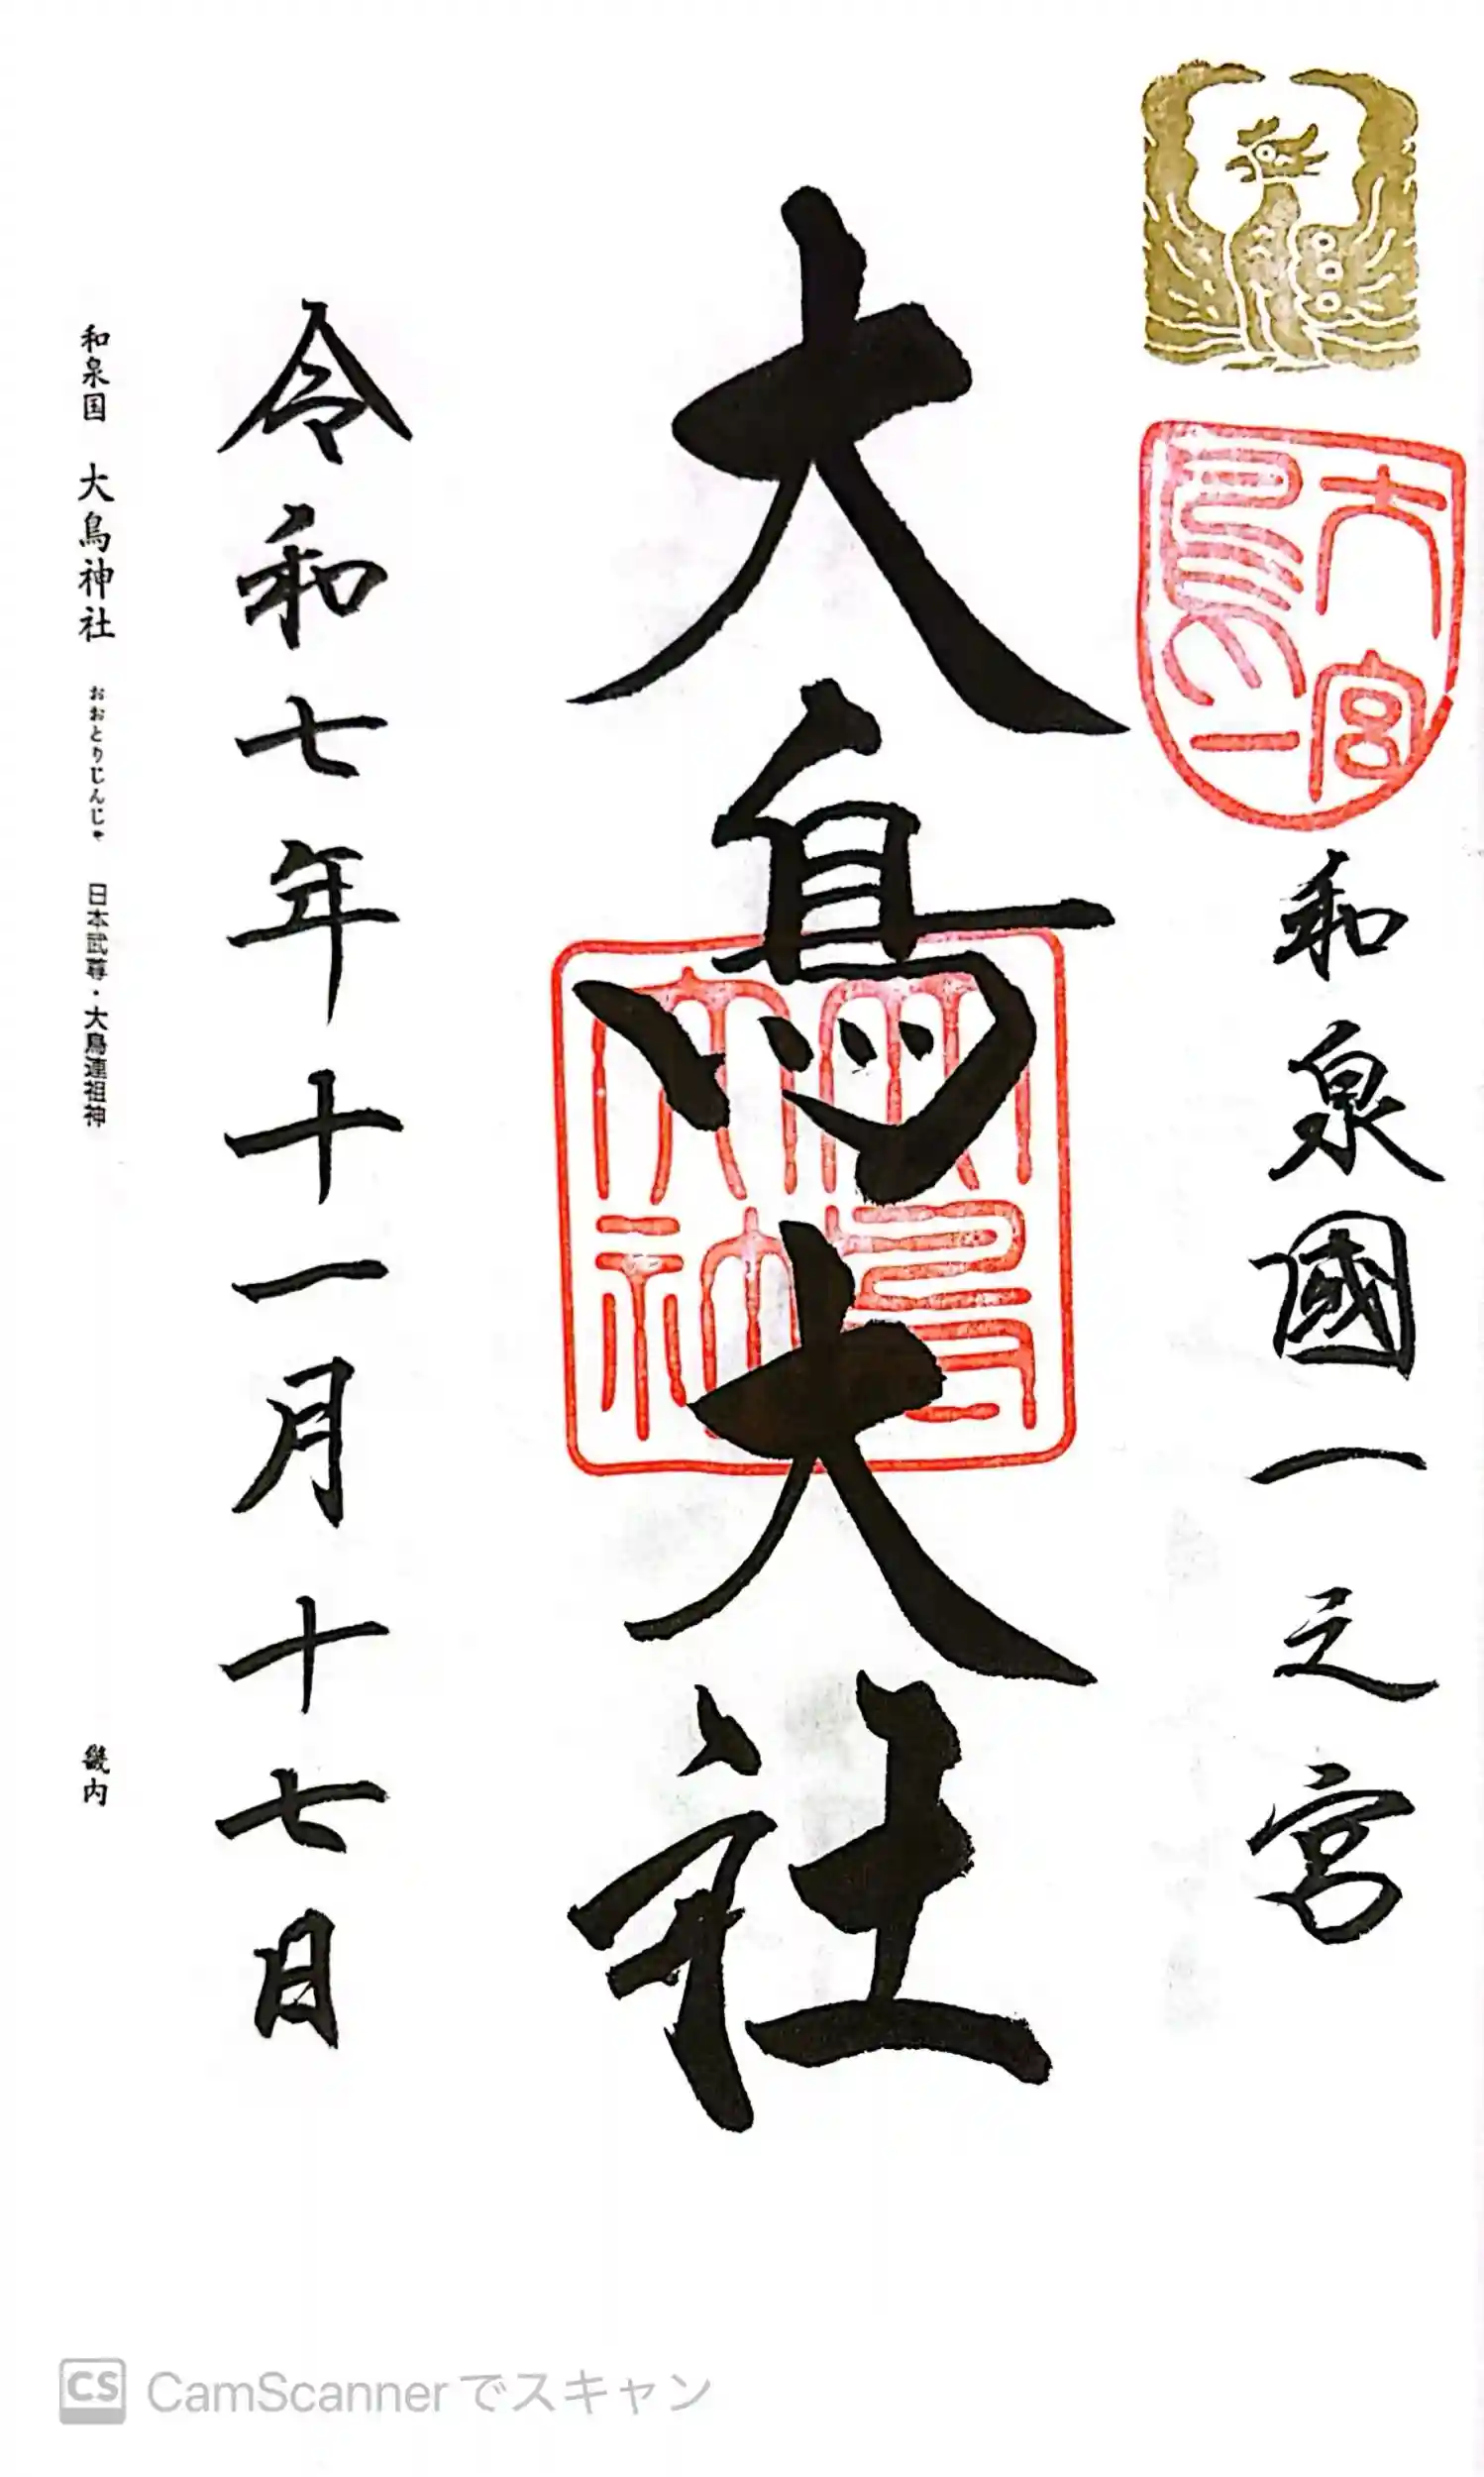 大鳥
一宮
和泉國一之宮
大鳥大社
令和七年十一月十七日
和泉国 大鳥神社 おおとりじんじゃ 日本武尊・大鳥連祖神 畿内
CS CamScannerでスキャン